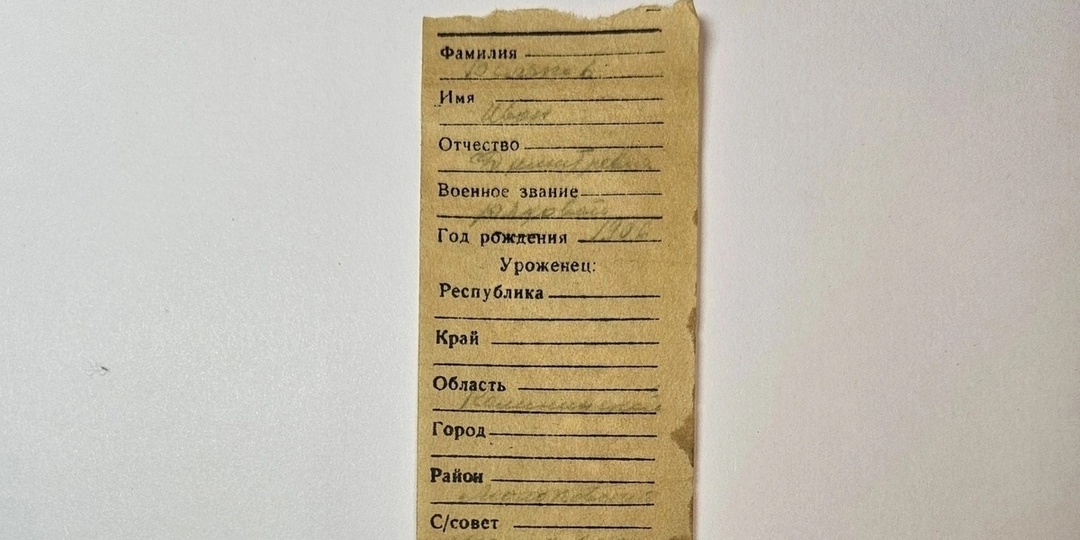 Фамилия
Имя
Иван
Отчество
Военное звание
рядовой
Год рождения 1906
Уроженец:
Республика
Край
Область
Город
Район
С/совет